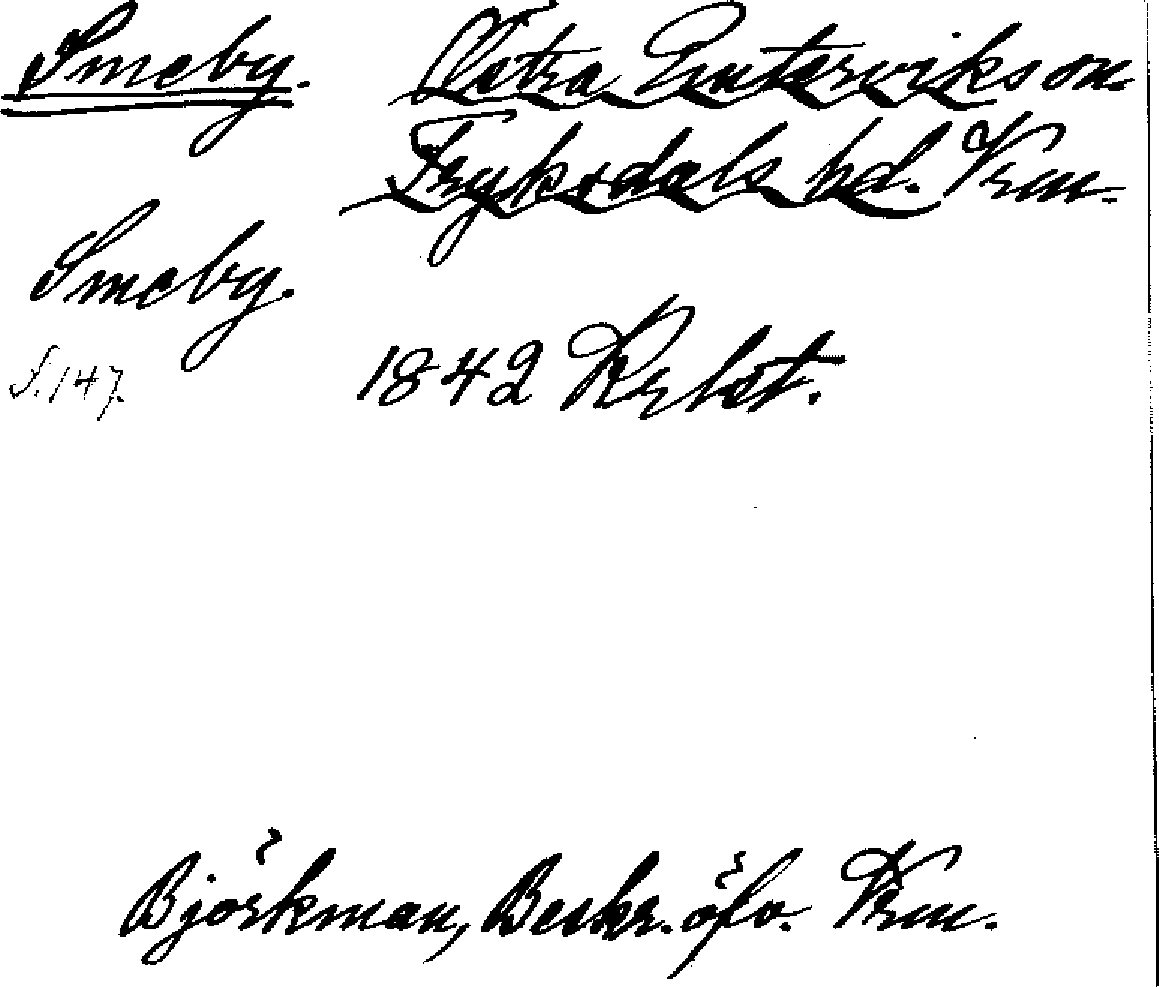 Smeby. Östra Emtervik sn.
Fryksdals hd. Vrm.
Smeby.
S. 147. 1842 Krbst.
Björkman, Beskr. öfv. Vrm.